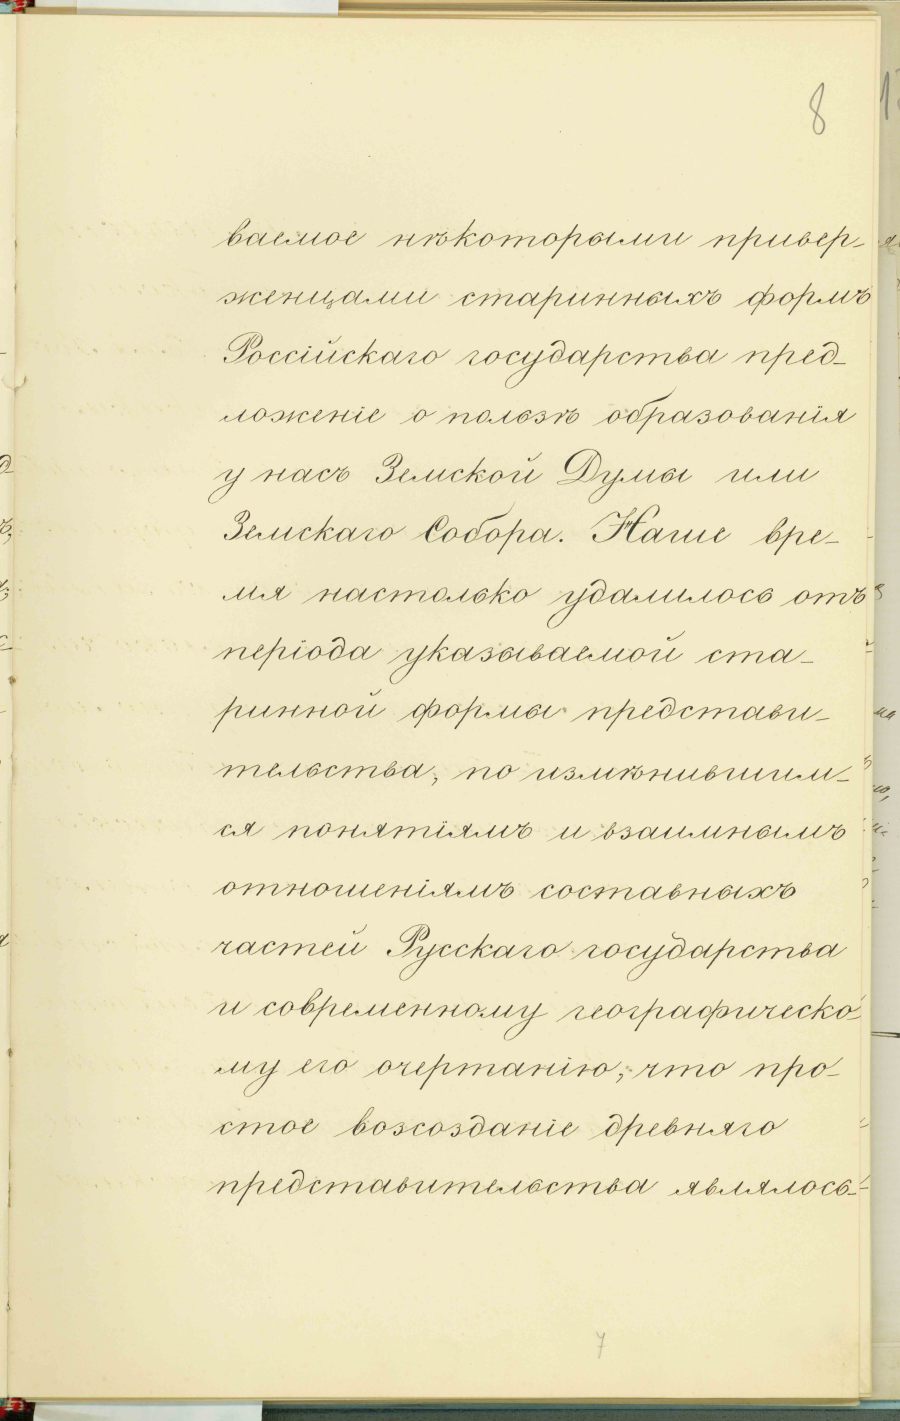 8
ваемое нѣкоторыми привер-
женцами старинныхъ формъ
Россійскаго государства пред-
ложеніе о пользѣ образованія
у насъ Земской Думы или
Земскаго Собора. Наше вре-
мя настолько удалилось отъ
періода указываемой ста-
ринной формы представи-
тельства, по измѣнившим-
ся понятіямъ и взаимнымъ
отношеніямъ составныхъ
частей Русскаго государства
и современному географическо-
му его очертанію, что про-
стое возсозданіе древняго
представительства являлось-
7